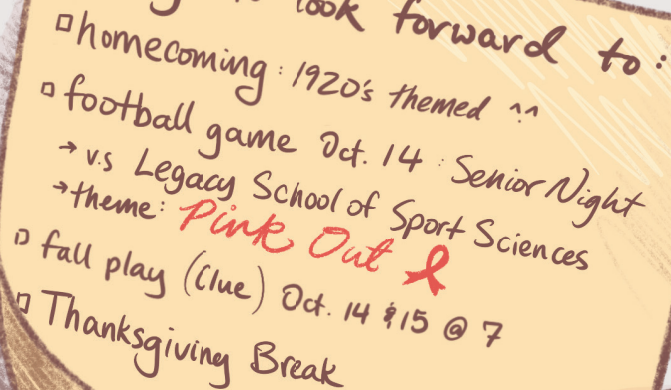 look forward to:
homecoming: 1920's themed ^^
football game Oct. 14: Senior Night
→ v.s Legacy School of Sport Sciences
→ theme: Pink Out
fall play (Clue) Oct. 14 & 15 @ 7
Thanksgiving Break